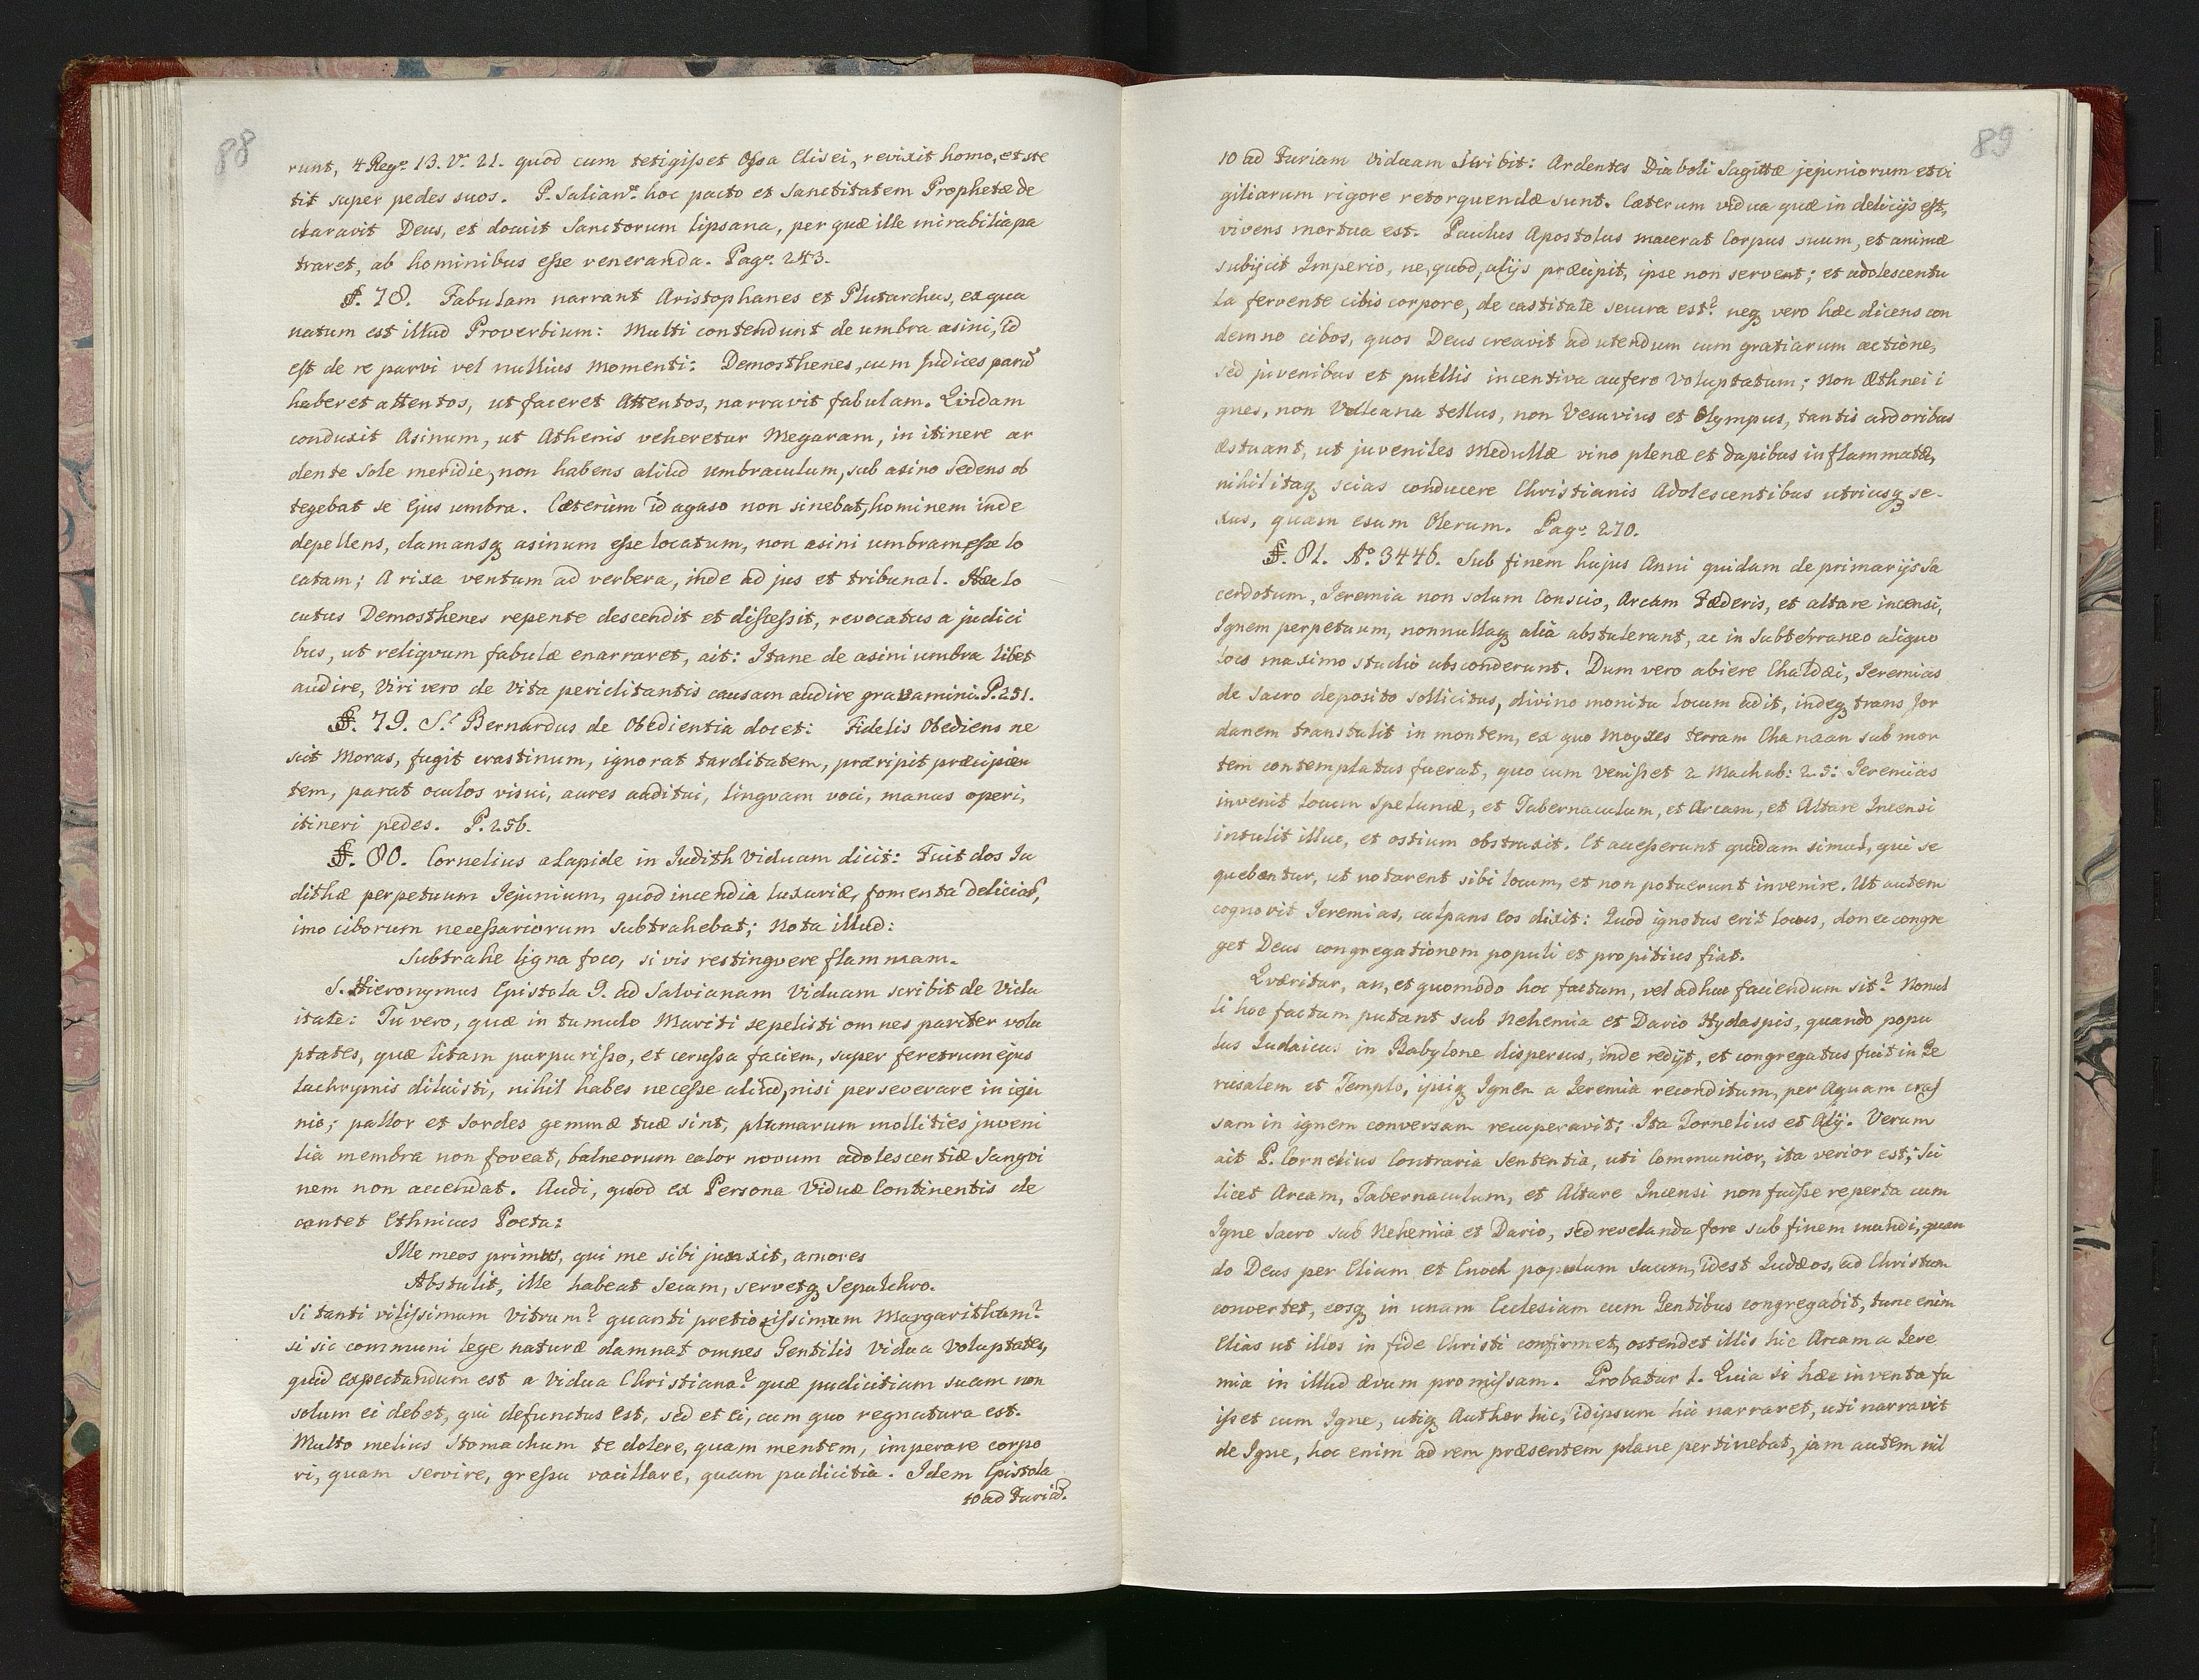 88
runt, 4 Regº 13. Vº 21. quod cum tetigisset Ossa Elisei, revixit homo, et ste
tit super pedes suos. P. Salianº hoc pacto et Sanctitatem Prophetæ de
claravit Deus, et docuit Sanctorum lipsana, per quæ ille mirabilia pa
traret, ab hominibus esse veneranda. Pagº 243.
§. 78. Fabulam narrant Aristophanes et Plutarchus, ex qua
natum est illud Proverbium: Multi contendunt de umbra asini, id
est de re parvi vel nullius momenti: Demosthenes, cum Judices parũ
haberet attentos, ut faceret Attentos, narravit fabulam. Quidam
conduxit Asinum, ut Athenis veheretur Megaram, in itinere ar
dente Sole meridie, non habens aliud umbraculum, sub asino Sedens ob
tegebat se Ejus umbra. Cæterùm id agaso non sinebat, hominem inde
depellens, clamansq asinum esse locatum, non asini umbram esse lo
catam; A rixa ventum ad verbera, inde ad jus et tribunal. Hæc lo
cutus Demosthenes repente descendit et discessit, revocatus a judici
bus, ut reliqvum fabulæ enarraret, ait: Itane de asini umbra libet
audire, Viri vero de Vita periclitantis causam audire gravamini. P. 251.
§. 79. S. Bernardus de Obedientia docet: Fidelis Obediens ne
scit Moras, fugit crastinum, ignorat tarditatem, præripit præcipien
tem, parat oculos visui, aures auditui, lingvam voci, manus operi,
itineri pedes. P. 256.
§. 80. Cornelius a Lapide in Judith Viduam dicit: Fuit dos Ju
dithæ perpetuum Jejunium, quod incendia luxuriæ, fomenta delicias,
imo ciborum necessariorum Subtrahebat; Nota illud:
Subtrahe ligna foco, si vis restingvere flammam.
S. Hieronymus Epistola 9. ad Salvianam Viduam scribit de Vidu
itate: Tu vero, quæ in tumulo Mariti sepelisti omnes pariter volu
ptates, quæ litam purpurisso, et cerussa faciem, super feretrum ejus
lachrymis diluisti, nihil habes necesse aliud, nisi perseverare in ieju
nio; pallor et Sordes gemmæ tuæ sint, plumarum mollities juveni
lia membra non foveat, balneorum calor novum adolescentiæ Sangvi
nem non accendat. Audi, quod ex Persona Viduæ Continentis de
cantet Ethnicus Poeta:
Ille meos primus, qui me sibi junxit, amores
Abstulit, ille habeat Secum, servetq Sepulchro.
Si tanti vilissimum Vitrum? quanti pretiosissimum Margaritham?
si sic communi lege naturæ damnat omnes Gentilis Vidua Voluptates,
quid expectandum est a Vidua Christiana? quæ pudicitiam suam non
solum ei debet, qui defunctus est, sed et Ei, cum quo regnatura est.
Multo melius Stomachum te dolere, quam mentem, imperare corpo
ri, quam servire, gressu vacillare, quam pudicitia. Idem Epistola
10 ad Furiã.
89
10 ad Furiam Viduam Scribit: Ardentes Diaboli Sagittæ jejuniorum et vi
giliarum rigore retorquendæ sunt. Cæterum vidua quæ in delicijs est,
vivens mortua est. Paulus Apostolus macerat Corpus suum, et animæ
subijcit Imperio, ne, quod, alijs præcipit, ipse non servent; et adolescentu
la fervente cibis corpore, de castitate secura est? neq vero hæc dicens con
demno cibos, quos Deus creavit ad utendum cum gratiarum actione,
sed juvenibus et puellis incentiva aufero Voluptatum; Non Æthnei i
gnes, non Vulcana tellus, non Vesuvius et Olympus, tantis ardoribus
æstuant, ut juveniles Medullæ vino plenæ et dapibus inflammatæ,
nihil itaq scias conducere Christianis Adolescentibus utriusq se-
xus, quam esum Olerum. Pagº 270.
§. 81. Aº. 3446. Sub finem hujus Anni quidam de primarijs Sa
cerdotum, Jeremia non solum Conscio, Arcam Fæderis, et altare incensi,
Ignem perpetuum, nonnullaq alia abstulerant, ac in Subterraneo aliquo
loco maximo studio absconderunt. Dum vero abiere Chaldæi, Jeremias
de Sacro deposito sollicitus, divino monitu locum adit, indeq trans Jor
danem transtulit in montem, ex quo Moyses terram Chanaan sub mor
tem contemplatus fuerat, quo cum venisset 2 Machab: 2. 5: Jeremias
invenit locum Speluncæ, et Tabernaculum, et Arcam, et Altare Incensi
intulit illuc, et ostium obstruxit. Et accesserunt quidam simul, qui se
quebantur, ut notarent sibi locum, et non potuerunt invenire. Ut autem
cognovit Jeremias, culpans Eos dixit: Quod ignotus erit locus, donec congre
get Deus congregationem populi et propitius fiat.
Quæritur, an, et quomodo hoc factum, vel adhuc faciendum sit? Nonul
li hoc factum putant sub Nehemia et Dario Hydaspis, quando popu
lus Judaicus in Babylone dispersus, inde redijt, et congregatus fuit in Je
rusalem et Templo, ipsiq Ignem a Jeremia reconditum, per Aquam cras
sam in ignem conversam recuperavit: Ita Cornelius et Alij. Verum
ait P. Cornelius Contraria Sententia, uti Communior, ita verior est, Sci
licet Arcam, Tabernaculum, et Altare Incensi non fuisse reperta cum
Igne Sacro Sub Nehemia et Dario, sed revelanda fore sub finem mundi, quan
do Deus per Eliam et Enoch populum suum, id est Judæos, ad Christum
convertet, eosq in unam Ecclesiam cum Gentibus congregabit, tunc enim
Elias ut illos in fide Christi confirmet, ostendet illis hic Arcam a Jere
mia in illud ævum promissam. Probatur 1. Quia si hæc inventa fu
isset cum Igne, utiq Author hic, idipsum hic narraret, uti narravit
de Igne, hoc enim ad rem præsentem plane pertinebat, jam autem nil